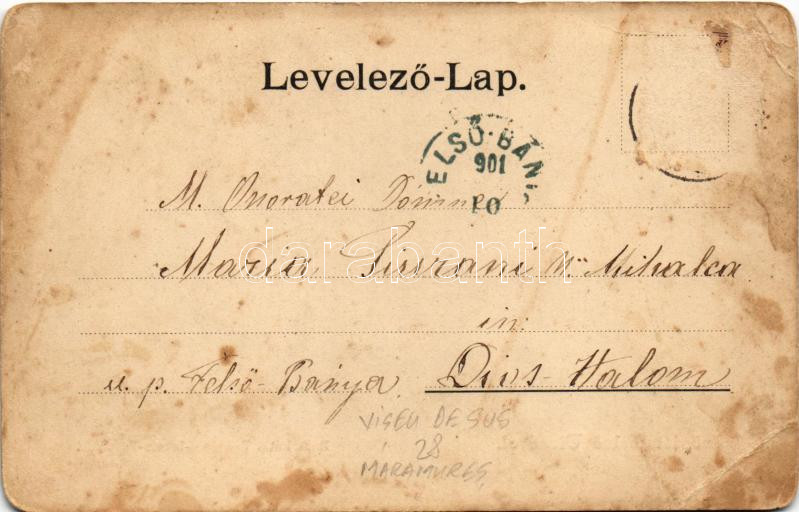 Levelező-Lap.
ELSŐ-BÁNY
901
10
M. Onoratei Domnei
Maria Mihalca
in:
u. p. Felső-Bánya. Dios-Halom
VISEU DE SUS
28
MARAMURES
darabanth